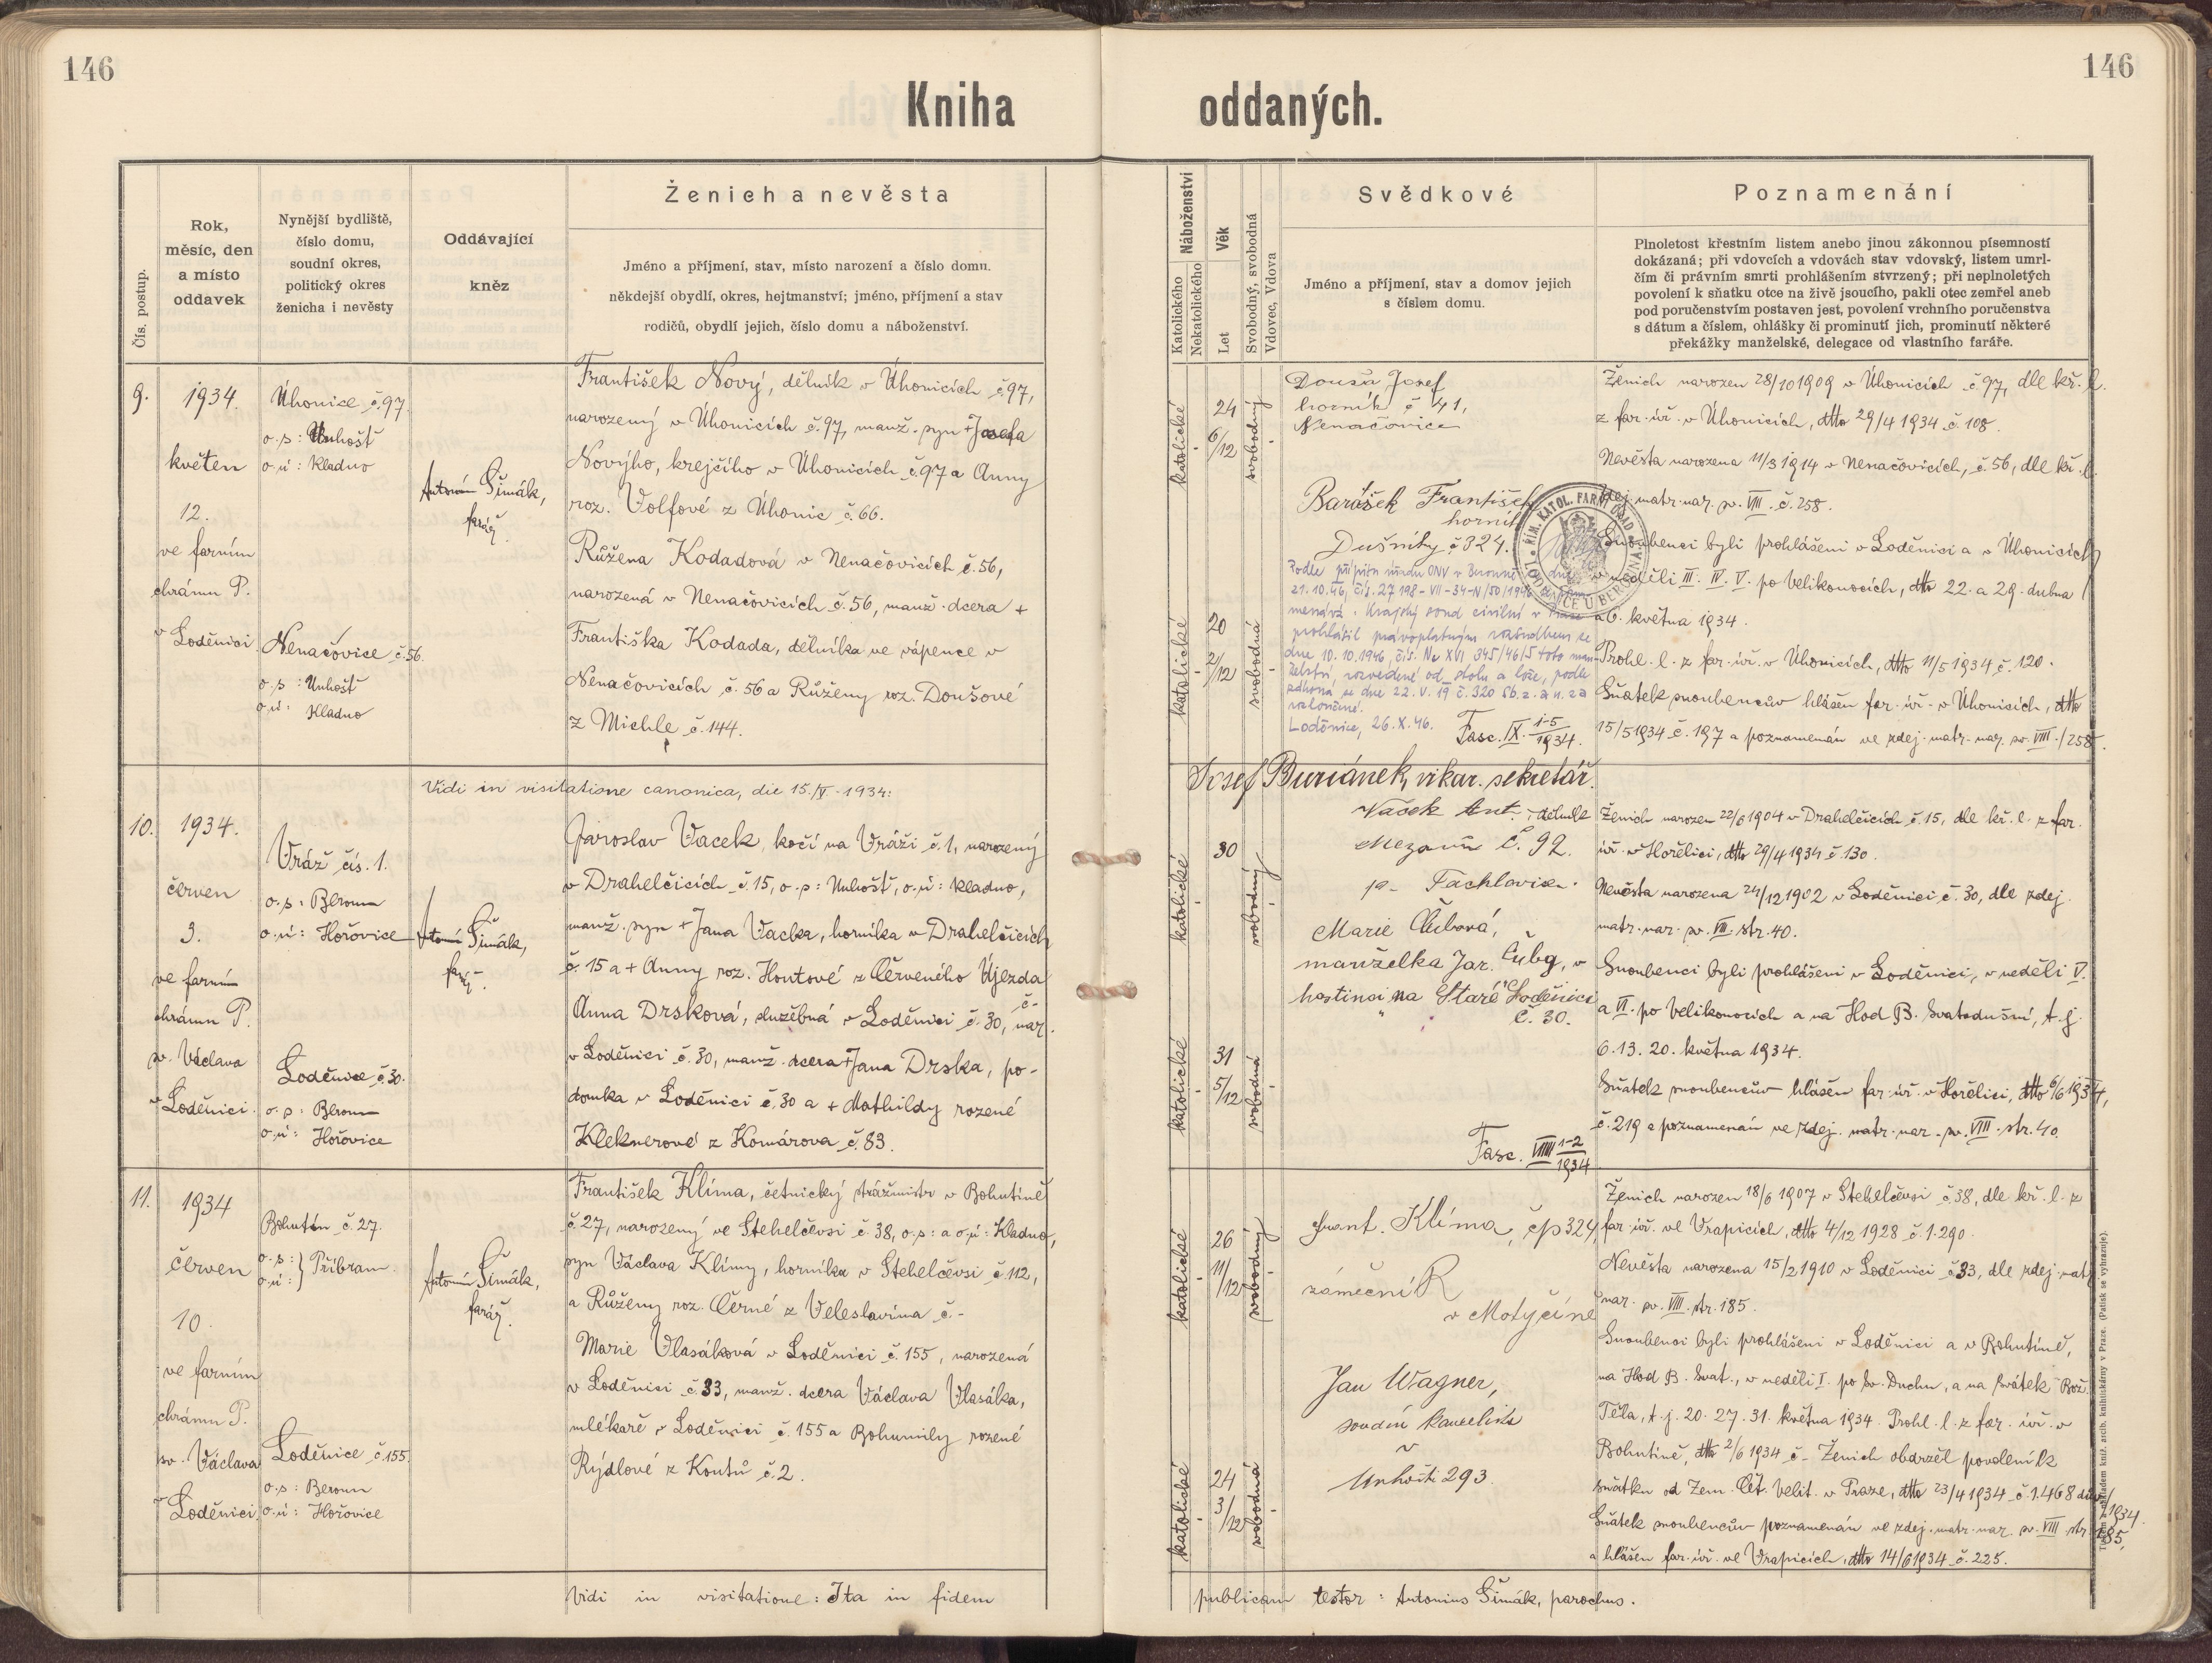 146
146
Kniha
oddaných.
Čís. postup.
Rok,
měsíc, den
a místo
oddavek
Nynější bydliště,
číslo domu,
soudní okres,
politický okres
ženicha i nevěsty
Oddávající
kněz
Ženich a nevěsta
Jméno a příjmení, stav, místo narození a číslo domu.
někdejší obydlí, okres, hejtmanství; jméno, příjmení a stav
rodičů, obydlí jejich, číslo domu a náboženství.
Náboženství
Katolického
Nekatolického
Věk
Let
Svobodný, svobodná
Vdovec, Vdova
Svědkové
Jméno a příjmení, stav a domov jejich
s číslem domu.
Poznamenání
Plnoletost křestním listem anebo jinou zákonnou písemností
dokázaná; při vdovcích a vdovách stav vdovský, listem umrl-
čím či právním smrti prohlášením stvrzený; při neplnoletých
povolení k sňatku otce na živě jsoucího, pakli otec zemřel aneb
pod poručenstvím postaven jest, povolení vrchního poručenstva
s dátum a číslem, ohlášky či prominutí jich, prominutí některé
překážky manželské, delegace od vlastního faráře.
9.
1934.
květen
12.
ve farním
chrámu P.
v Loděnici
Úhonice č.97.
o.s: Unhošť
o.ú: Kladno
Nenačovice č.56.
o.s: Unhošť
o.ú: Kladno
Antonín Šimák,
farář.
František Nový, dělník v Úhonicích č.97,
narozený v Úhonicích č.97, manž. syn + Josefa
Novýho, krejčího v Úhonicích č.97 a Anny
roz. Volfové z Úhonic č.66.
Růžena Kodadová v Nenačovicích č.56,
narozená v Nenačovicích č.56, manž. dcera +
Františka Kodada, dělníka ve vápence v
Nenačovicích č.56 a Růženy roz. Doušové
z Michle č.144.
katolické
24
6/12
svobodný
katolické
20
2/12
svobodná
Douša Josef
horník č 41,
Nenačovice
Barášek František
horník
Dušníky č 324.
ŘÍM. KATOL. FARNÍ ÚŘAD
LODĚNICE U BEROUNA
Podle přípitu úřadu ONV v Berouně dne
21.10.46, čís. 27198-VII-34-N/50/1946
Krajský soud civilní v Praze
prohlásil právoplatným rozsudkem ze
dne 10.10.1946, čís. Nc XVI 345/46/5 toto man-
želství, rozvedené od stolu a lože, podle
zákona ze dne 22.V.19 č.320 Sb.z.a n. za
rozloučené.
Loděnice, 26.X.46.
Fasc. IX. 1-5/1934.
Ženich narozen 28/10 1909 v Úhonicích č.97, dle kř. l.
z far. úř. v Úhonicích, dtto 29/4 1934 č.108.
Nevěsta narozena 11/3 1914 v Nenačovicích, č.56, dle kř. l.
zdej. matr. nar. sv. VIII. č.258.
Snoubenci byli prohlášeni v Loděnici a v Úhonicích
v neděli III. IV. V. po Velikonocích, dtto 22. a 29. dubna
a 6. května 1934.
Prohl. l. z far. úř. v Úhonicích, dtto 11/5 1934 č.120.
Sňatek snoubencův hlášen far. úř. v Úhonicích, dtto
15/5 1934 č.197 a poznamenán ve zdej. matr. nar. sv. VIII./258.
Vidi in visitatione canonica, die 15./V.1934:
Josef Buriánek, vikar. sekretář.
10.
1934.
červen
3.
ve farním
chrámu P.
sv. Václava
v Loděnici.
Vráž čís. 1.
o.s: Beroun
o.ú: Hořovice
Loděnice č.30.
o.s: Beroun
o.ú: Hořovice
Antonín Šimák,
farář.
Jaroslav Vacek, kočí na Vráži č.1, narozený
v Drahelčicích č.15, o.s: Unhošť, o.ú: Kladno,
manž. syn + Jana Vacka, horníka v Drahelčicích
č.15 a + Anny roz. Houtové z Červeného Újezda
č.-
Anna Drsková, služebná v Loděnici č.30, nar.
v Loděnici č.30, manž. dcera + Jana Drska, po-
domka v Loděnici č.30 a + Mathildy rozené
Kleknerové z Komárova č.83.
katolické
30
svobodný
katolické
31
5/12
svobodná
Vaček Ant. dělník
Mezouň č. 92.
p. Tachlovice.
Marie Čubová,
manželka Jar. Čuby, v
hostinci na "Staré" Loděnici
č. 30.
Fasc. VIIII 1-2/1934
Ženich narozen 22/6 1904 v Drahelčicích č.15, dle kř. l. z far.
úř. v Hořelici, dtto 29/4 1934 č.130.
Nevěsta narozena 24/12 1902 v Loděnici č.30, dle zdej.
matr. nar. sv. VII. str.40.
Snoubenci byli prohlášeni v Loděnici, v neděli V.
a VI. po Velikonocích a na Hod B. Svatodušní, t.j.
6.13.20. května 1934.
Sňatek snoubencův hlášen far. úř. v Hořelici, dtto 6/6 1934,
č.219 a poznamenán ve zdej. matr. nar. sv. VIII. str.40.
11.
1934
červen
10.
ve farním
chrámu P.
sv. Václava
v Loděnici
Bohutín č.27.
o.s: } Příbram
o.ú:
Loděnice č.155.
o.s: Beroun
o.ú: Hořovice
Antonín Šimák,
farář.
František Klíma, četnický strážmistr v Bohutíně
č.27, narozený ve Stehelčevsi č.38, o.s: a o.ú: Kladno,
syn Václava Klímy, horníka v Stehelčevsi č.112,
a Růženy roz. Černé z Veleslavína č.-
Marie Vlasáková v Loděnici č.155, narozená
v Loděnici č.33, manž. dcera Václava Vlasáka,
mlékaře v Loděnici č.155 a Bohumily rozené
Rýdlové z Koutů č.2.
katolické
26
11/12
svobodný
katolické
24
3/12
svobodná
Frant. Klíma, čp 324,
zámečník
v Motyčíně
Jan Wagner,
soudní kancelista
v
Unhošti 293.
Ženich narozen 18/6 1907 v Stehelčevsi č.38, dle kř. l. z
far. úř. ve Vrapicích, dtto 4/12 1928 č.1.290.
Nevěsta narozena 15/2 1910 v Loděnici č.33, dle zdej. matr.
nar. sv. VIII. str.185.
Snoubenci byli prohlášeni v Loděnici a v Bohutíně,
na Hod B. Svat., v neděli I. po Sv. Duchu, a na svátek Bož.
Těla, t.j. 20. 27. 31. května 1934. Prohl. l. z far. úř. v
Bohutíně, dtto 2/6 1934 č.- Ženich obdržel povolení k
sňatku od Zem. Čet. Velit. v Praze, dtto 23/4 1934 č.1.468 dův/1934.
Sňatek snoubencův poznamenán ve zdej. matr. nar. sv. VIII. str. 185,
a hlášen far. úř. ve Vrapicích, dtto 14/6 1934 č.225.
Vidi in visitatione: Ita in fidem
publicam testor: Antonius Šimák, parochus.
knihtiskárny v Praze. (Patisk se vyhrazuje).